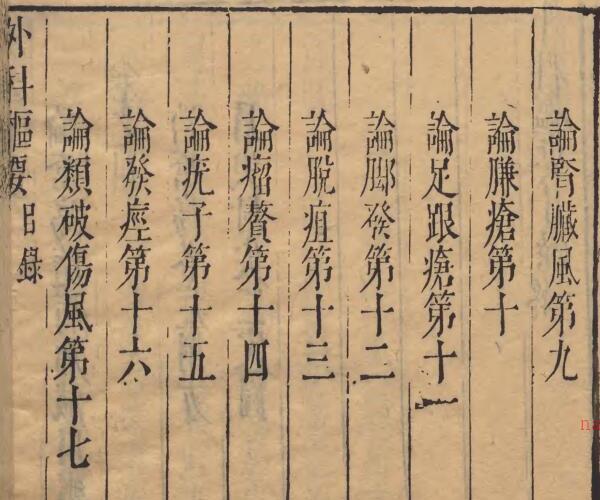 論腎臟風第九
論臁瘡第十
論足跟瘡第十一
論脚發第十二
論脫疽第十三
論瘤贅第十四
論疣子第十五
論發痙第十六
論類破傷風第十七
外科樞要目錄
na